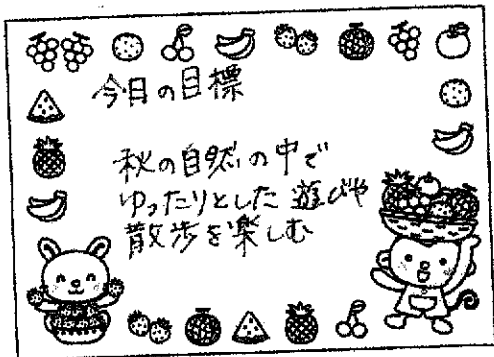 今日の目標
秋の自然の中で
ゆったりとした遊びや
散歩を楽しむ